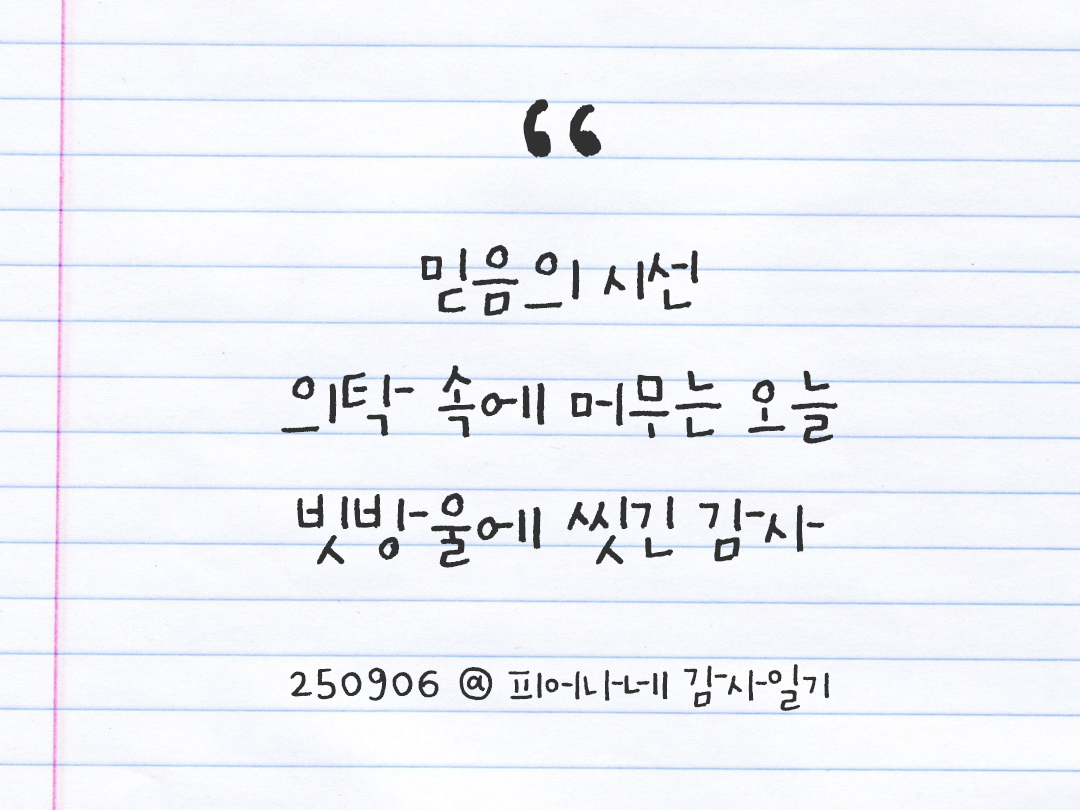 “
믿음의 시선
의탁 속에 머무는 오늘
빗방울에 씻긴 감사
250906 @ 피어나네 감사일기